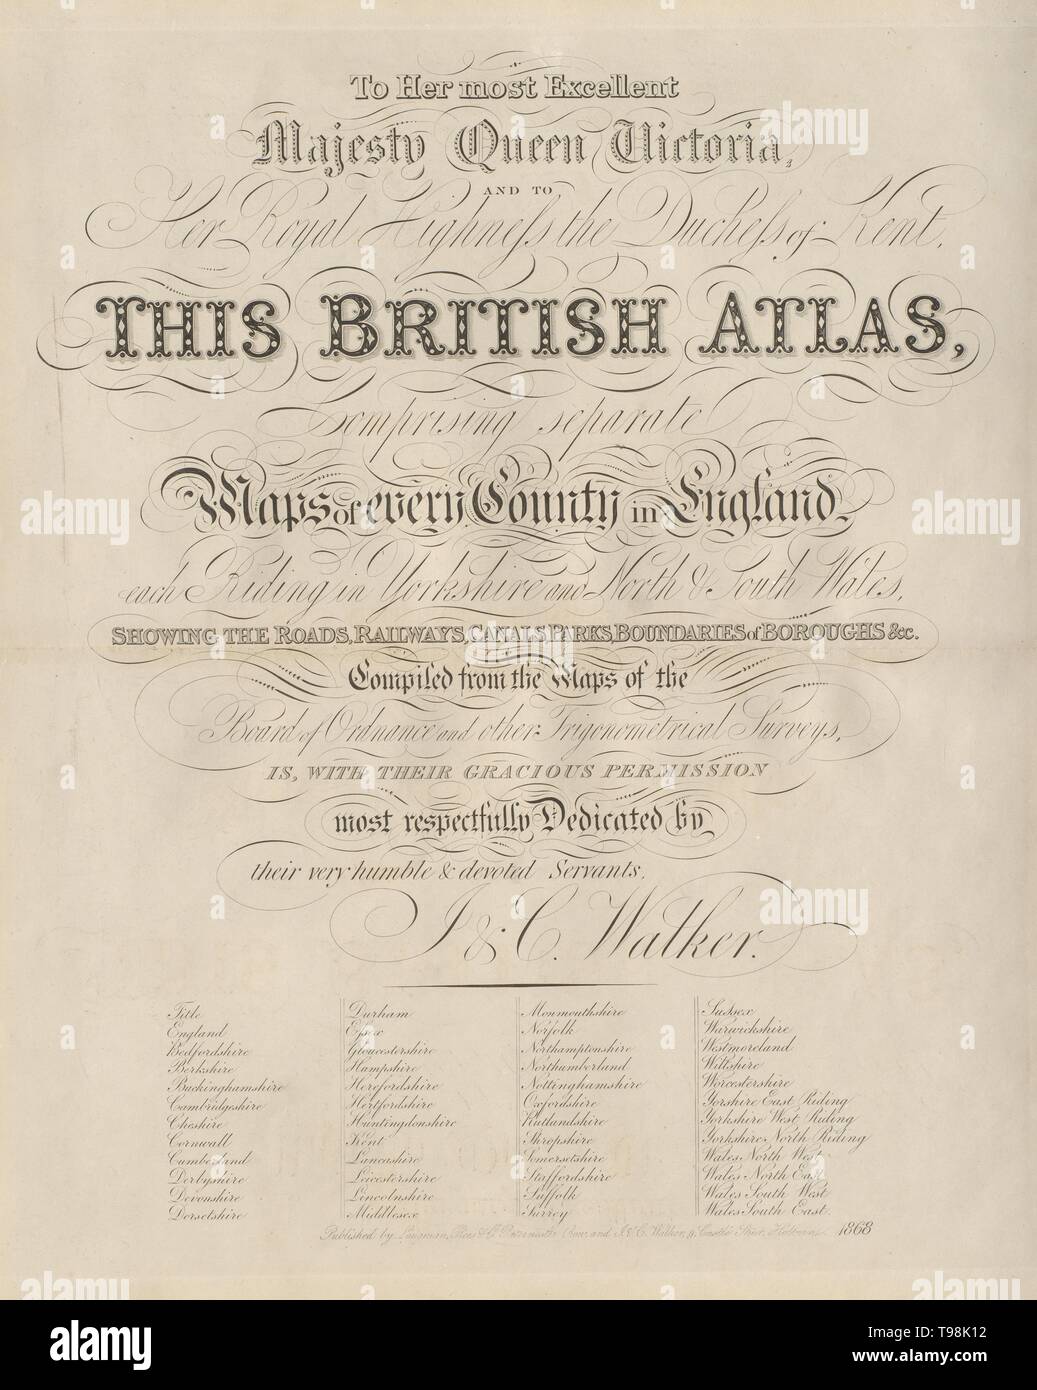 To Her most Excellent
Majesty Queen Victoria,
AND TO
Her Royal Highneſs the Ducheſs of Kent,
THIS BRITISH ATLAS,
Comprising separate
Maps of every County in England,
each Riding in Yorkshire and North & South Wales,
SHOWING THE ROADS, RAILWAYS, CANALS, PARKS, BOUNDARIES of BOROUGHS &c.
Compiled from the Maps of the
Board of Ordnance and other Trigonometrical Surveys,
IS, WITH THEIR GRACIOUS PERMISSION
most respectfully Dedicated by
their very humble & devoted Servants,
J & C. Walker.
Title
England
Bedfordshire
Berkshire
Buckinghamshire
Cambridgeshire
Cheshire
Cornwall
Cumberland
Derbyshire
Devonshire
Dorsetshire
Durham
Eſsex
Gloucestershire
Hampshire
Herefordshire
Hertfordshire
Huntingdonshire
Kent
Lancashire
Leicestershire
Lincolnshire
Middlesex
Monmouthshire
Norfolk
Northamptonshire
Northumberland
Nottinghamshire
Oxfordshire
Rutlandshire
Shropshire
Somersetshire
Staffordshire
Suffolk
Surrey
Sussex
Warwickshire
Westmoreland
Wiltshire
Worcestershire
Yorshire East Riding
Yorkshire West Riding
Yorkshire North Riding
Wales North West
Wales North East
Wales South West
Wales South East.
Published by Longman, Rees & Co. Paternoster Row, and J. & C. Walker, 9, Castle Street, Holborn. 1868
alamy
Image ID: T98K12
www.alamy.com